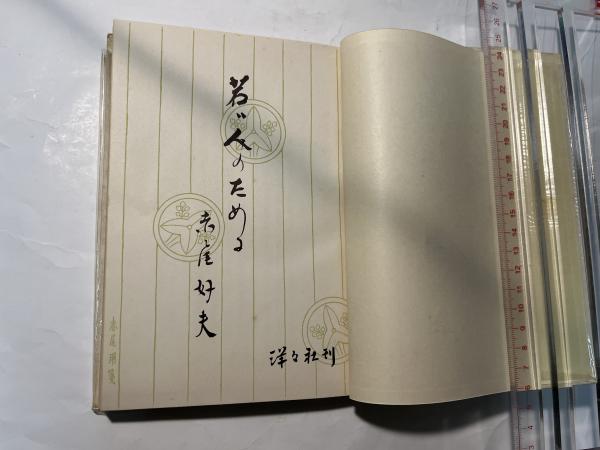 若い人のために
赤尾好夫
洋々社刊
赤尾用箋